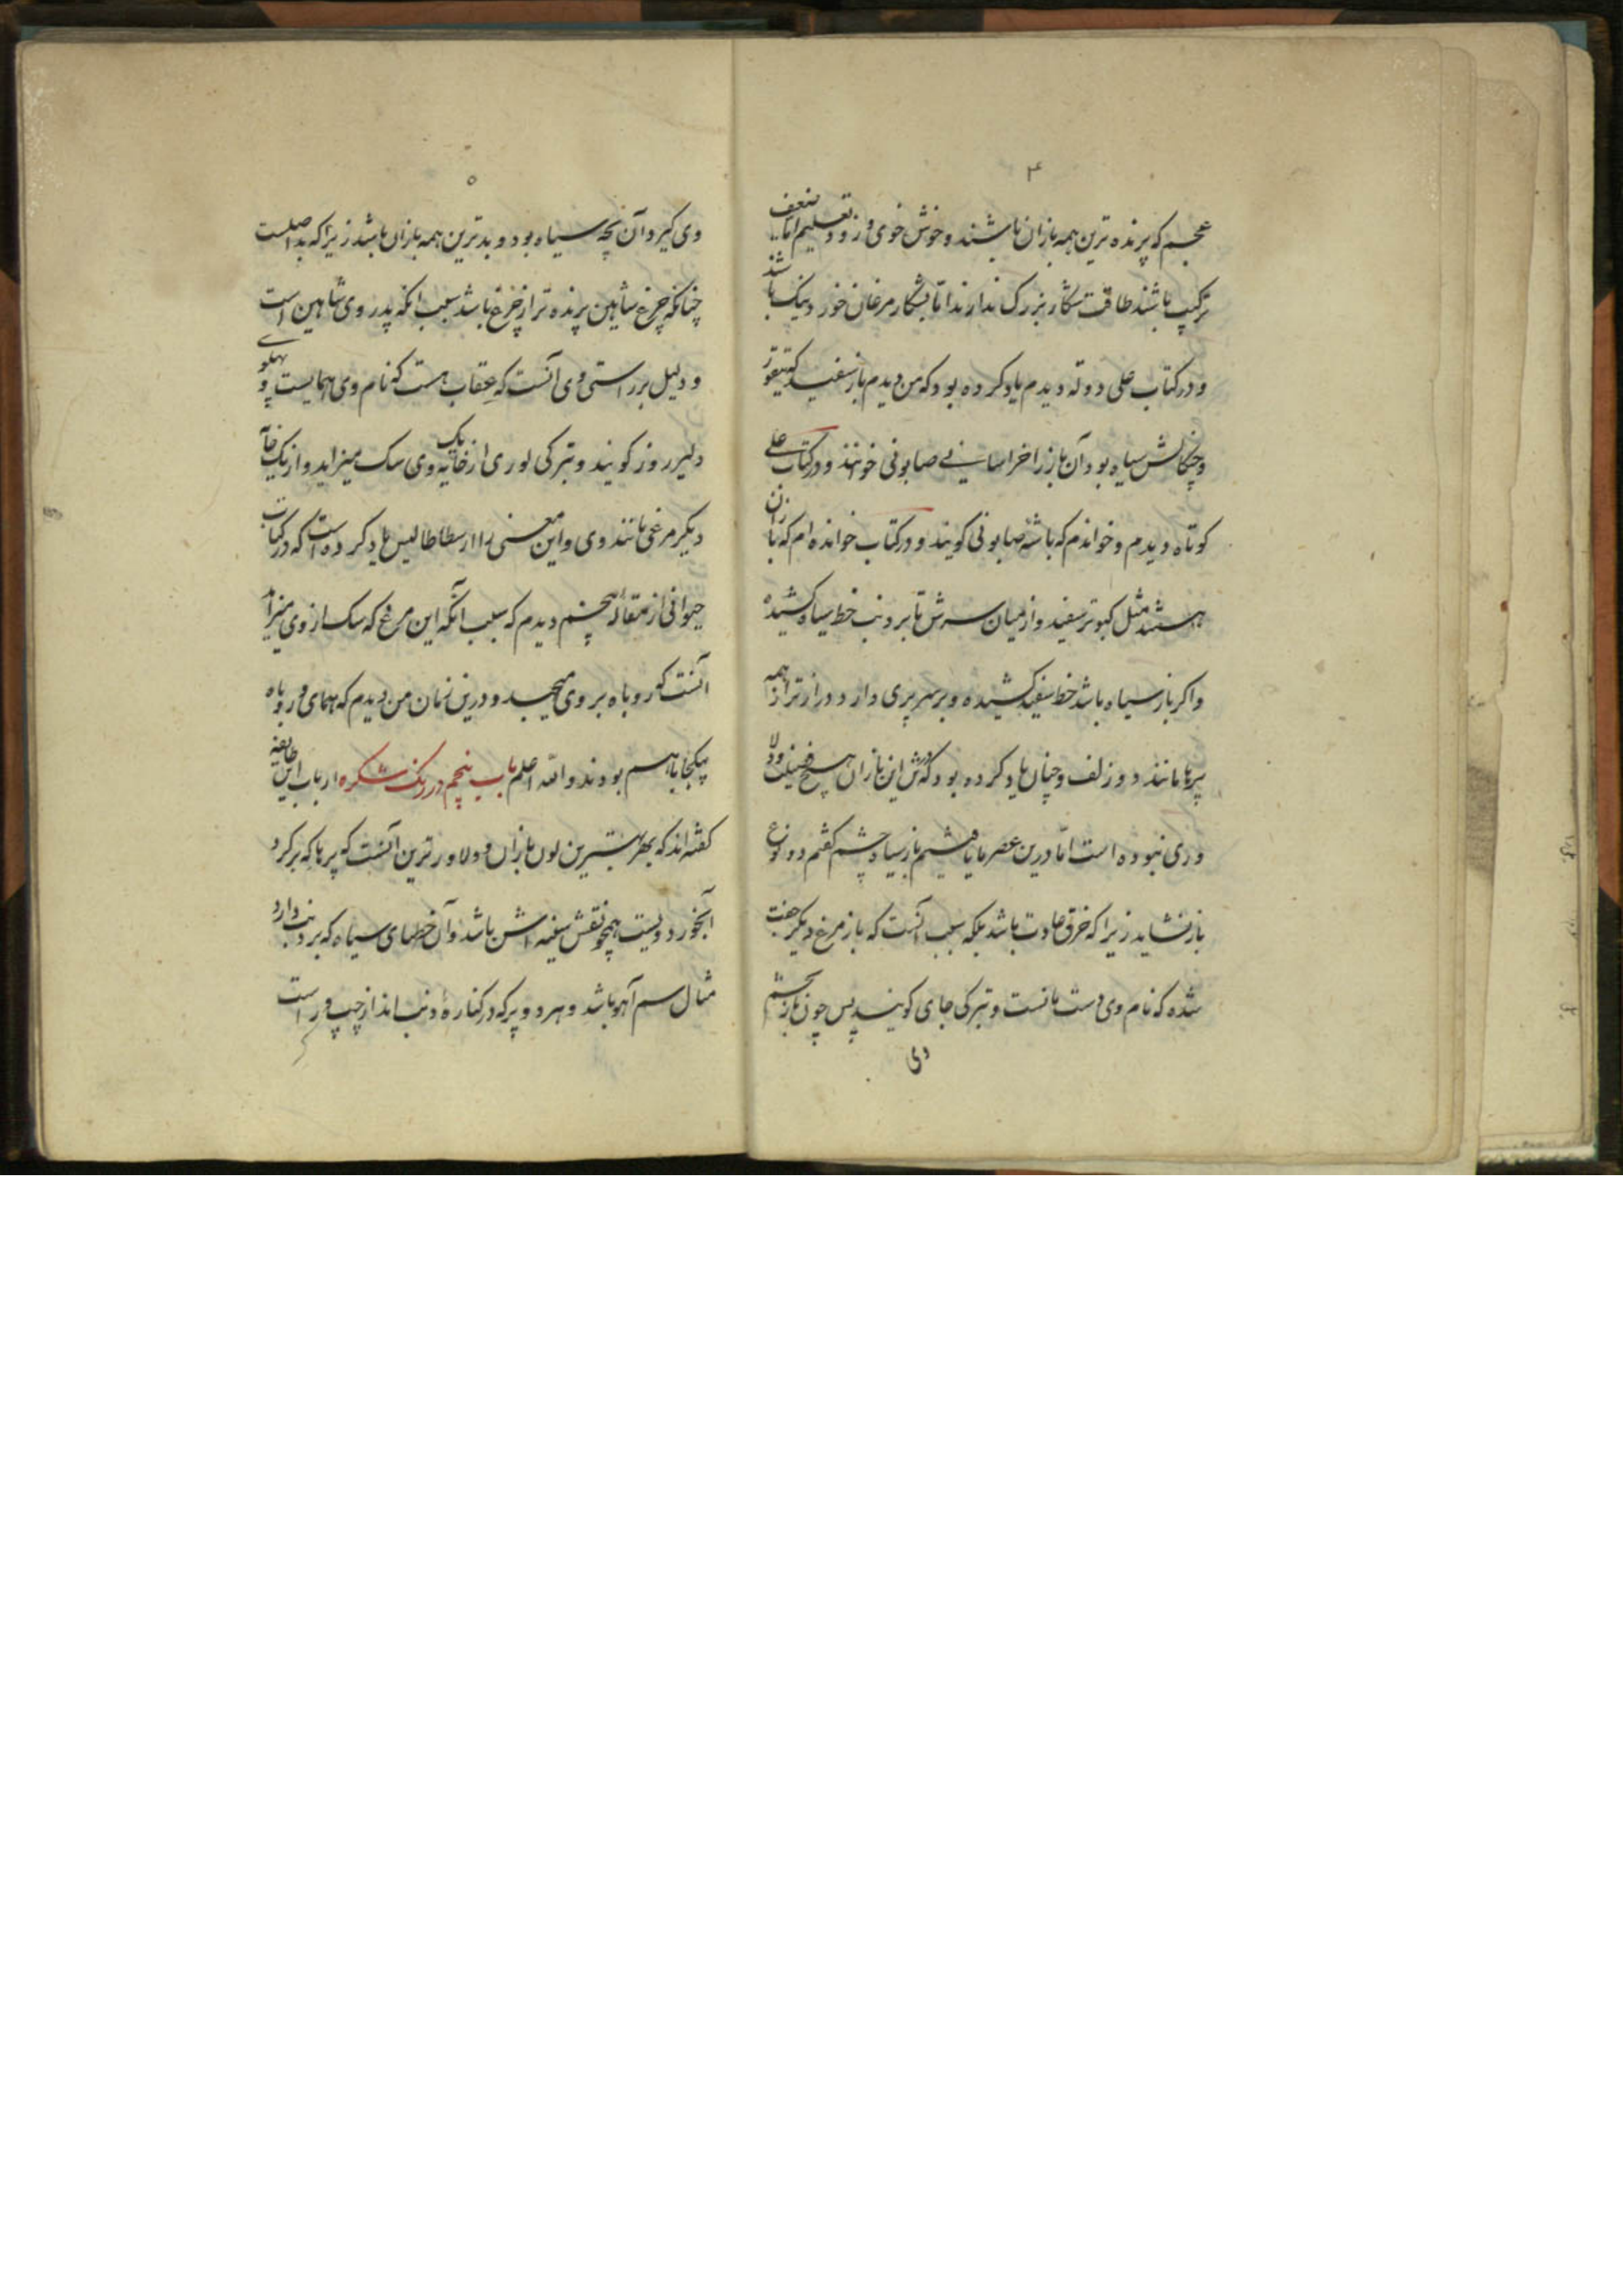 ۴
عجم که پرنده ترین همه بازان باشند و خوش خوی و زود تعلیم اما ضعیف
ترکیب باشند طاقت شکار بزرک ندارند اما بشکار مرغان خورد نیک باشد
و در کتاب علی دوله دیدم یاد کرده بود که من دیدم باز سفید
و چنکالش سیاه بود آن باز را خراسانی صابونی خوانند و در کتاب علی
کوتاه دیدم و خواندم که باشه صابونی کویند و در کتاب خوانده ام که بازان
هستند مثل کبوتر سفید و از میان سرش تا بر دنب خط سیاه کشیده
و اکر باز سیاه باشد خط سفید کشیده و بر سر پری دارد درازتر از همه
پرها مانند دو زلف و چنان یاد کرده بود که درش این بازان هیچ فضیلت و دلا
وری نبوده است اما درین عصر ما یافتیم باز سیاه چشم کفتم دو نوع
باز نشاید زیرا که خرق عادت باشد بلکه سبب آنست که باز مرغ دیکر جفت
شده که نام وی دست مانست و بترکی جای کویند پس چون باز تخم
وی
۵
وی کیرد آن بچه سیاه بود و بدترین همه بازان باشد زیرا که بد اصلست
چنانکه چرغ شاهین پرنده تر از چرغ باشد سبب انکه پدر وی شاهین است
و دلیل بر راستی وی آنست که عقاب هست که نام وی همایست پهلوی و
دلیر روز کویند و بترکی لوری از یک خایه وی سک میزاید و از یک خایه
دیکر مرغی مانند وی و این معنی را ارسطاطالیس یاد کرده است که در کتاب
حیوانی از مقاله پنجم دیدم که سبب آنکه این مرغ که سک از وی میزاید
آنست که روباه بر وی میجهد و درین زمان من دیدم که همای و روباه
بیکجا باهم بودند والله اعلم باب پنجم در رنک شکره ارباب این طایفه
کفته اند که بهترین لون بازان و دلاورترین آنست که پرها که بر کرد
آبخورد ویست همچو نقش سفینه اش باشد و آن خطهای سیاه که بر دنب دارد
مثال سم آهو باشد و هر دو پر که در کناره دنب اند از چپ و راست